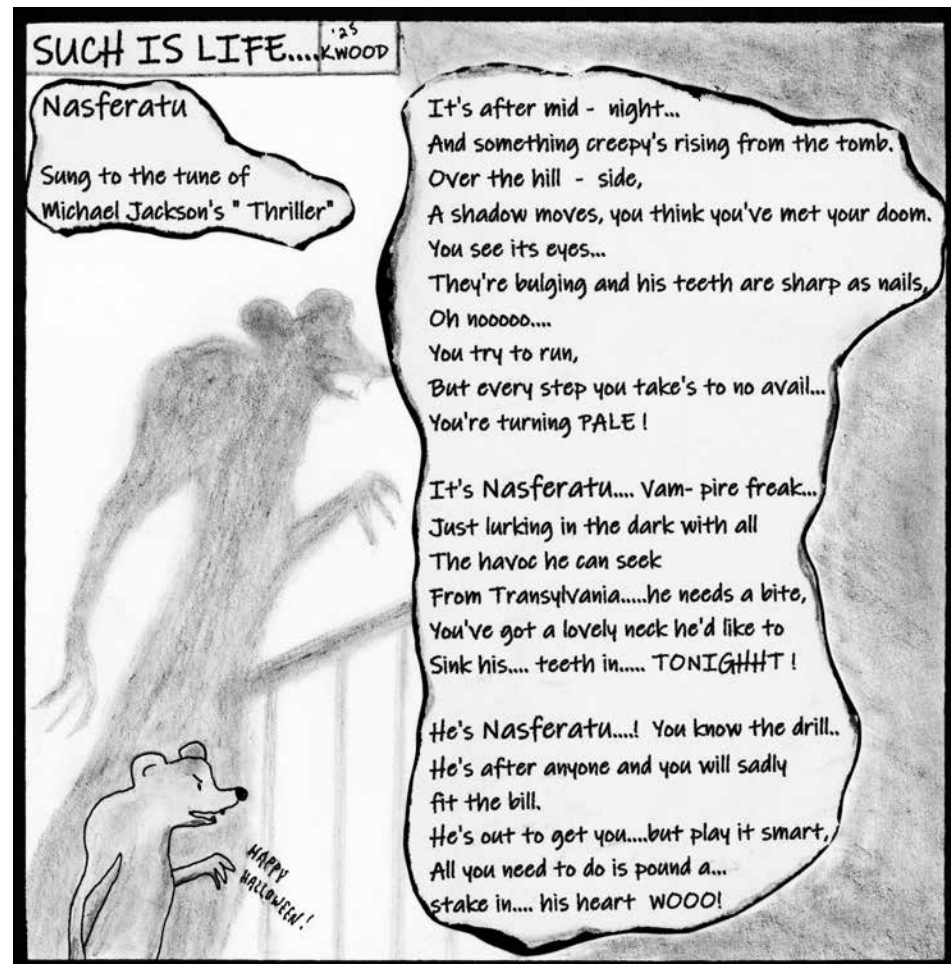 SUCH IS LIFE....
'25
KWOOD
Nasferatu
Sung to the tune of
Michael Jackson's " Thriller"
It's after mid - night...
And something creepy's rising from the tomb.
Over the hill - side,
A shadow moves, you think you've met your doom.
You see its eyes...
They're bulging and his teeth are sharp as nails,
Oh nooooo....
You try to run,
But every step you take's to no avail...
You're turning PALE !
It's Nasferatu.... Vam- pire freak...
Just lurking in the dark with all
The havoc he can seek
From Transylvania.....he needs a bite,
You've got a lovely neck he'd like to
Sink his.... teeth in..... TONIGHHT !
He's Nasferatu....! You know the drill..
He's after anyone and you will sadly
fit the bill.
He's out to get you....but play it smart,
All you need to do is pound a...
stake in.... his heart WOOO!
HAPPY
HALLOWEEN!